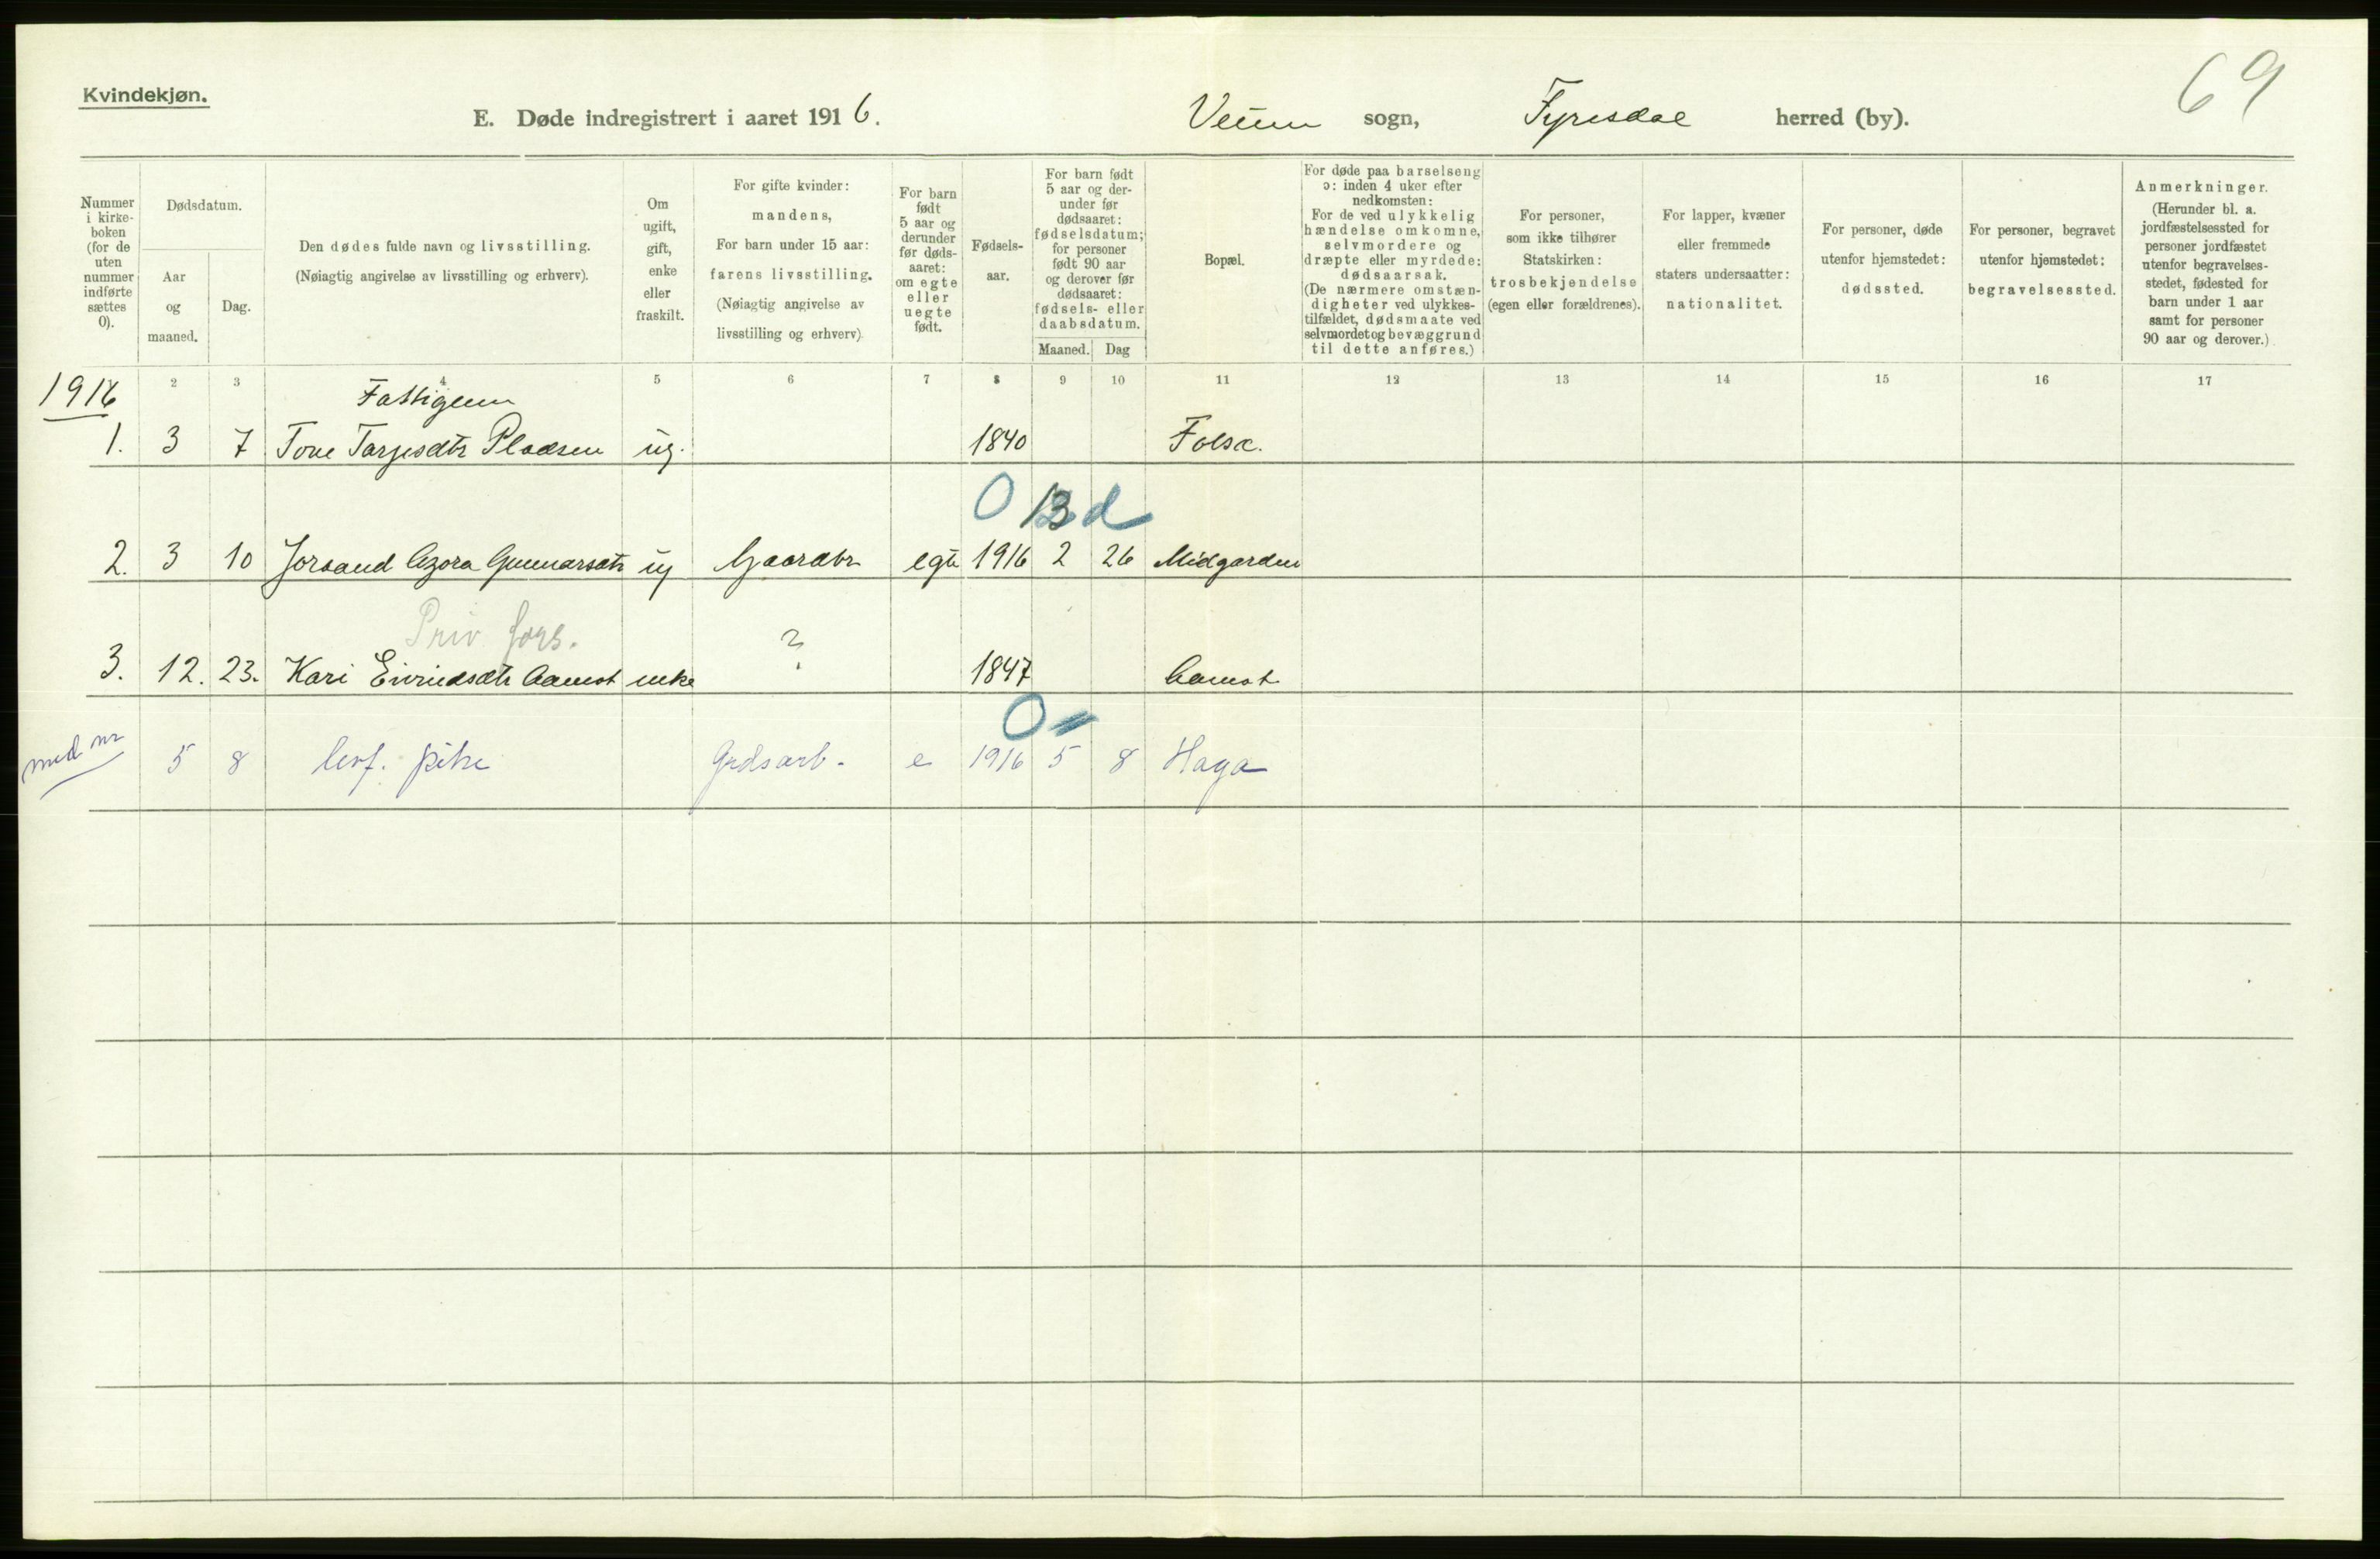 Kvindekjøn.
69
E. Døde indregistrert i aaret 1916.
Veum sogn, Fyresdal herred (by).
Nummer i kirke-boken (for de uten nummer indførte sættes 0).
Dødsdatum.
Aar og maaned.
Dag.
Den dødes fulde navn og livsstilling.
(Nøiagtig angivelse av livsstilling og erhverv).
Om ugift, gift, enke eller fraskilt.
For gifte kvinder:
mandens,
For barn under 15 aar:
farens livsstilling.
(Nøiagtig angivelse av
livsstilling og erhverv)
For barn født 5 aar og derunder før døds-aaret: om egte eller uegte født.
Fødsels-aar.
For barn født 5 aar og der-under før dødsaaret: fødselsdatum; for personer født 90 aar og derover før dødsaaret: fødsels- eller daabsdatum.
Maaned.
Dag
Bopæl.
For døde paa barselseng
ɔ: inden 4 uker efter
nedkomsten:
For de ved ulykkelig
hændelse omkomne,
selvmordere og
dræpte eller myrdede:
dødsaarsak.
(De nærmere omstæn-
digheter ved ulykkes-
tilfældet, dødsmaate ved
selvmordet og bevæggrund
til dette anføres.)
For personer,
som ikke tilhører
Statskirken:
trosbekjendelse
(egen eller forældrenes).
For lapper, kvæner
eller fremmede
staters undersaatter:
nationalitet.
For personer, døde
utenfor hjemstedet:
dødssted.
For personer, begravet
utenfor hjemstedet:
begravelsessted.
Anmerkninger.
(Herunder bl. a.
jordfæstelsessted for
personer jordfæstet
utenfor begravelses-
stedet, fødested for
barn under 1 aar
samt for personer
90 aar og derover.)
1916 2 3 4 5 6 7 8 9 10 11 12 13 14 15 16 17
Fattigem
1. 3 7 Tone Tarjesdtr Pladsen ug. 1840 Folsæ.
0 13 d
2. 3 10 Jorsand Azora Gunnarsdtr ug Gaardbr egte 1916 2 26 Midgarden
Priv fors.
3. 12. 23. Kari Eivindsdtr Aamot enke ? 1847 Aamot
0
med nr 5 8 levf. pike Grdsarb. e 1916 5 8 Haga